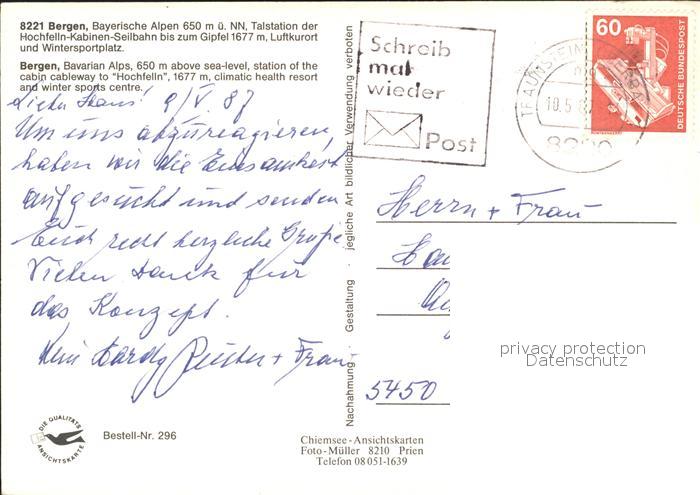 8221 Bergen, Bayerische Alpen 650 m ü. NN, Talstation der
Hochfelln-Kabinen-Seilbahn bis zum Gipfel 1677 m, Luftkurort
und Wintersportplatz.
Bergen, Bavarian Alps, 650 m above sea-level, station of the
cabin cableway to "Hochfelln", 1677 m, climatic health resort
and winter sports centre.
9/V. 87
Um uns abzureagieren,
haben wir die Einsamkeit
aufgesucht und senden
Euch recht herzliche Grüße
Vielen Dank für
das Konzept.
+ Frau
DIE QUALITÄTS
ANSICHTSKARTE
Bestell-Nr. 296
Nachahmung · Gestaltung · jegliche Art bildlicher Verwendung verboten
Chiemsee-Ansichtskarten
Foto-Müller 8210 Prien
Telefon 08051-1639
Schreib
mal
wieder
Post
TRAUNSTEIN
10.5.87
60
DEUTSCHE BUNDESPOST
Herrn + Frau
5450
privacy protection
Datenschutz